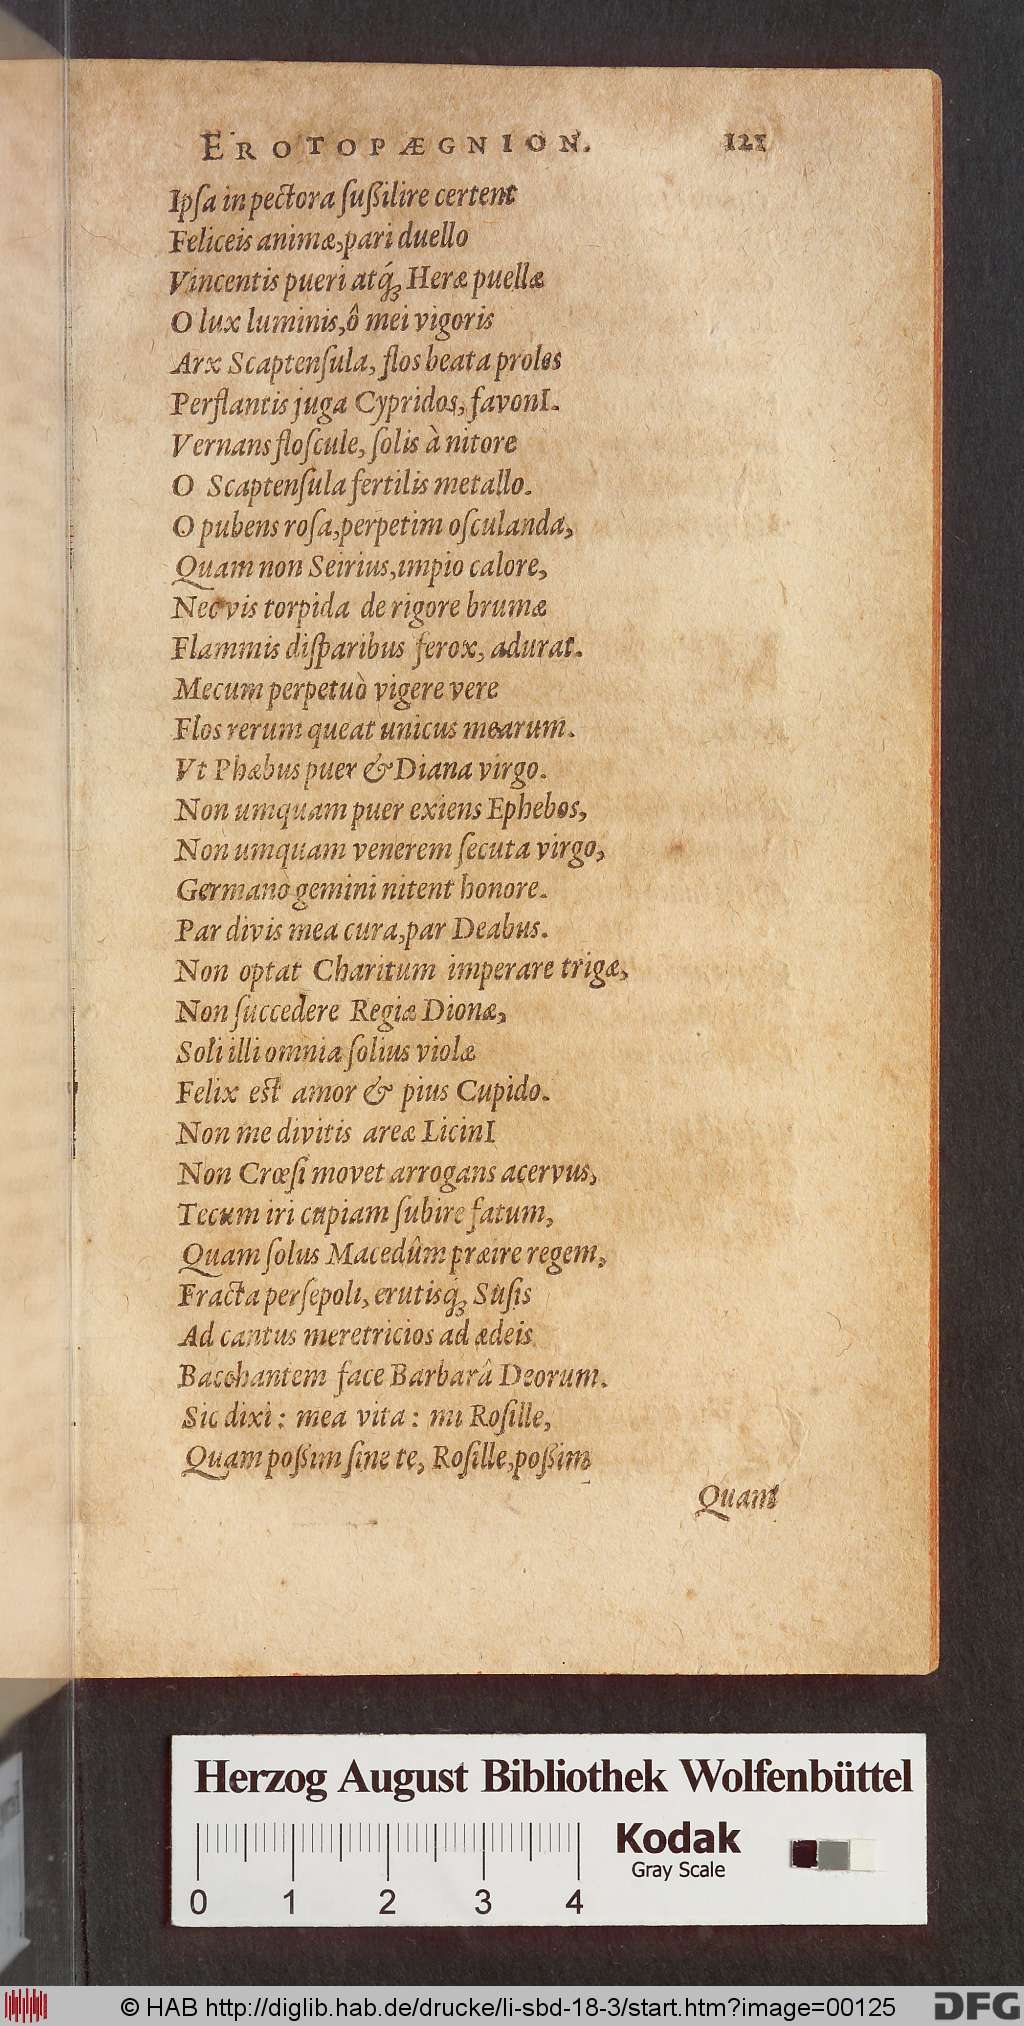 EROTOPÆGNION. 121
Ipſa in pectora ſußilire certent
Feliceis animæ, pari duello
Vincentis pueri atq́; Heræ puellæ
O lux luminis, ô mei vigoris
Arx Scaptenſula, flos beata proles
Perflantis juga Cypridos, favonI.
Vernans floſcule, ſolis à nitore
O Scaptenſula fertilis metallo.
O pubens roſa, perpetim oſculanda,
Quam non Seirius, impio calore,
Nec vis torpida de rigore brumæ
Flammis diſparibus ferox, adurat.
Mecum perpetuò vigere vere
Flos rerum queat unicus mearum.
Vt Phæbus puer & Diana virgo.
Non umquam puer exiens Ephebos,
Non umquam venerem ſecuta virgo,
Germano gemini nitent honore.
Par divis mea cura, par Deabus.
Non optat Charitum imperare trigæ,
Non ſuccedere Regiæ Dionæ,
Soli illi omnia ſolius violæ
Felix est amor & pius Cupido.
Non me divitis areæ LicinI
Non Crœſi movet arrogans acervus,
Tecum iri cupiam ſubire fatum,
Quam ſolus Macedûm præire regem,
Fracta perſepoli, erutisq́; Suſis
Ad cantus meretricios ad ædeis
Bacchantem face Barbarâ Deorum.
Sic dixi: mea vita: mi Roſille,
Quam poßim ſine te, Roſille, poßim
Quam
Herzog August Bibliothek Wolfenbüttel
Kodak
Gray Scale
0 1 2 3 4
© HAB http://diglib.hab.de/drucke/li-sbd-18-3/start.htm?image=00125
DFG